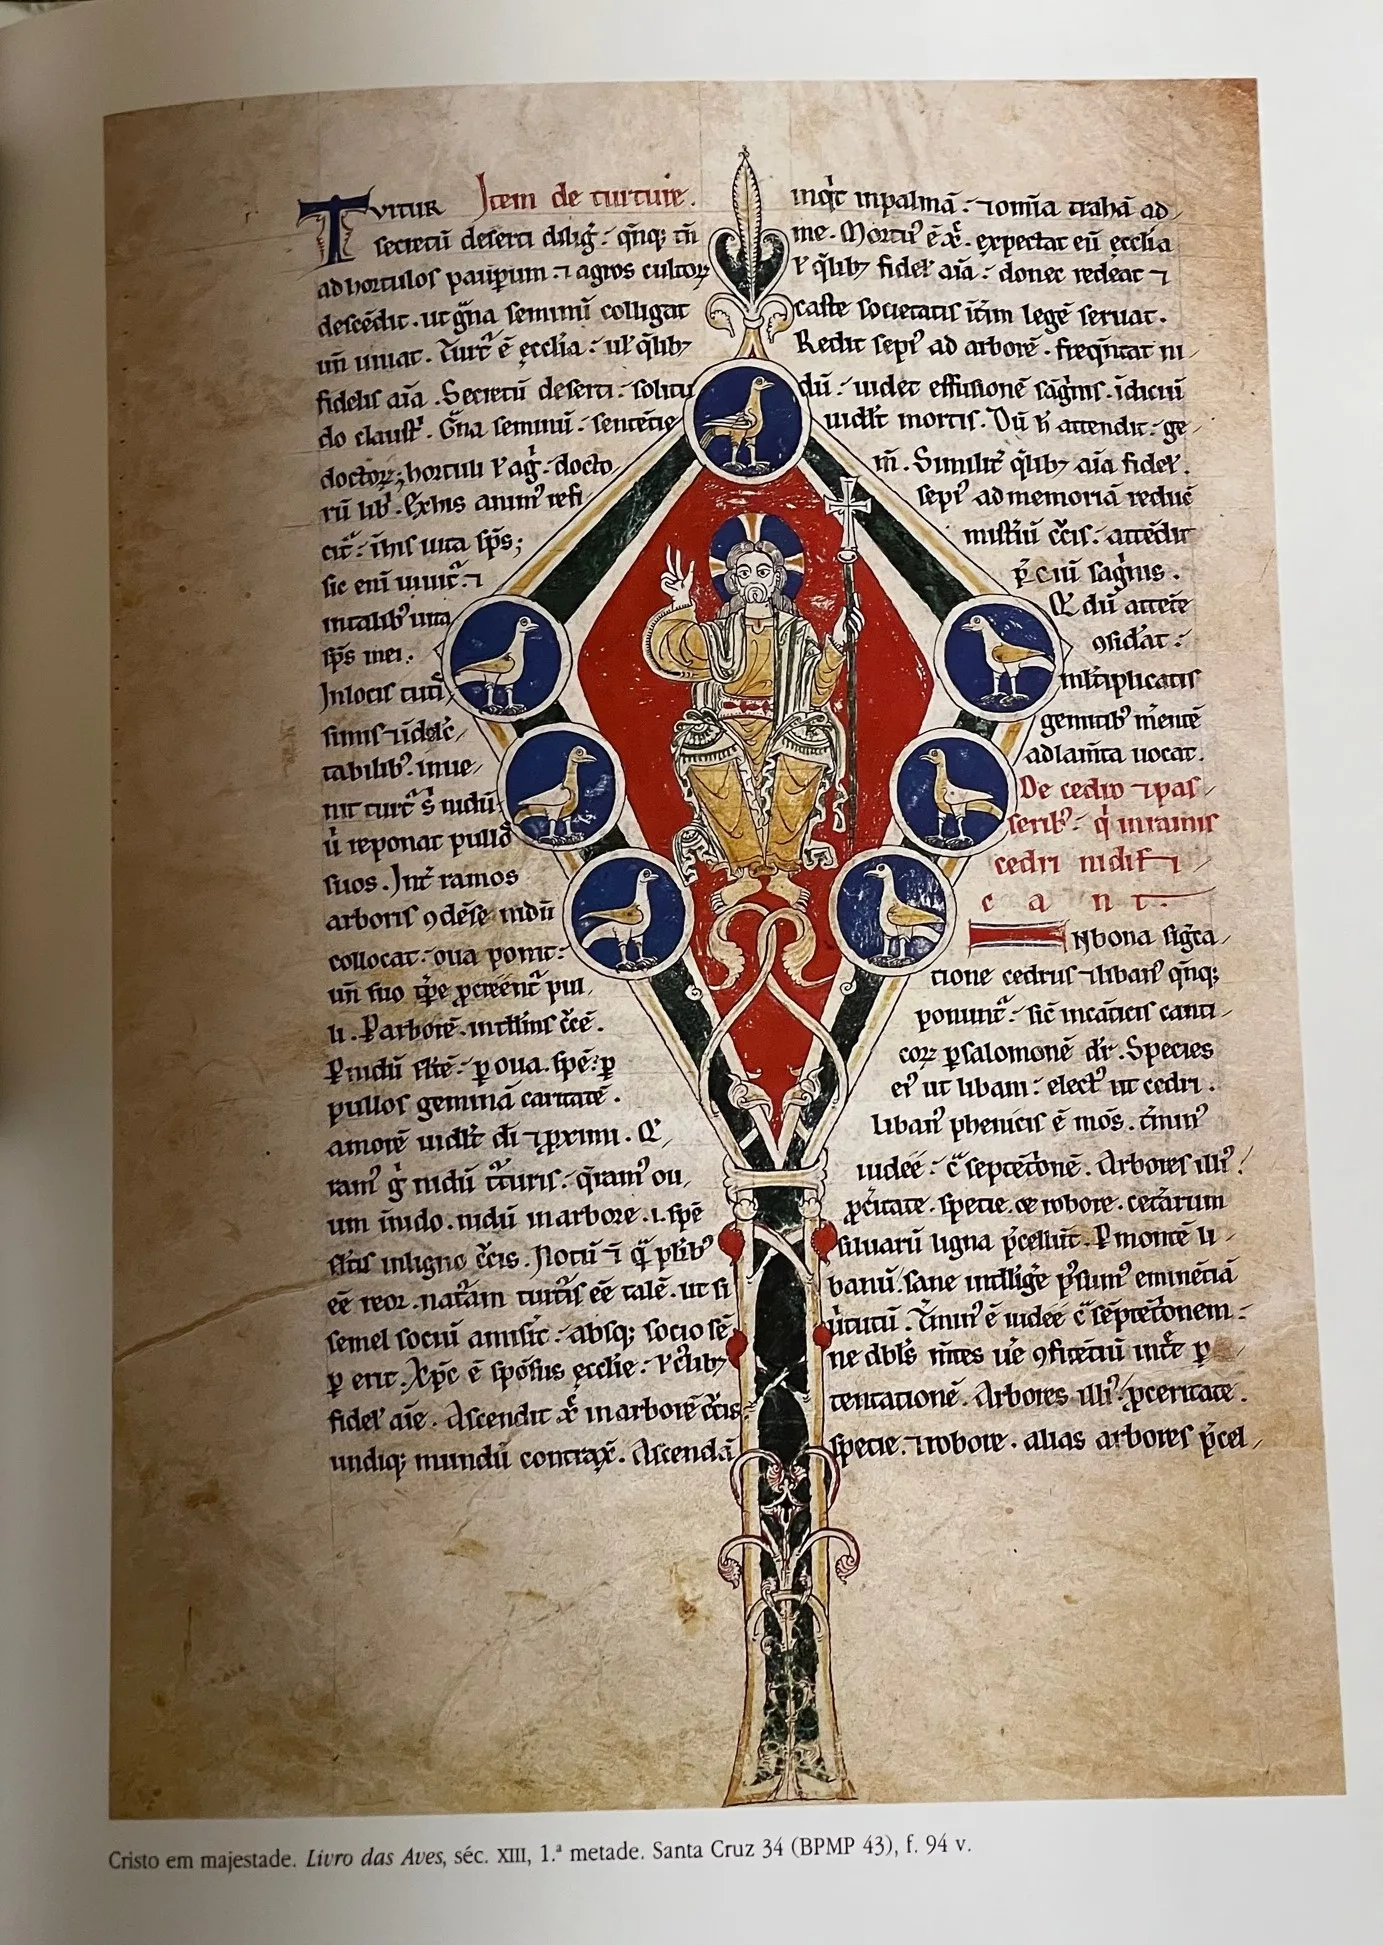 Item de turture.
TVRTUR
secretū deserti diliḡ : q̄nq; tn̄
ad hortulos paup̲um : ⁊ agros cultoꝝ
descēdit . ut g̃na seminū colligat
un̄ uiuat . Turt̄ ē ęcclia : ul̓ q̄lib᷒
fidelis aīa . Secretū deserti : solitu
do claust̓ . Gña seminū : sentētię
doctoꝝ; hortuli ⁊ ag̓ : docto
rū lib̓ . Ex his anim᷒ refi
cit̓ : ī his uita sp̄s;
sic enī uiuit̓ : ⁊
in talib᷒ uita
sp̄s mei .
In locis tuti
simis ⁊ delec
tabilib᷒ . inue
nit turt̓ s̄ nidū
ū reponat pullos
suos . Int̓ ramos
arboris ꝯdēse nidū
collocat : oua ponit :
un̄ suo tp̄e ꝓcreent̓ pul
li . P̲ arborē . intll̄ins c̓cē .
P̲ nidū sltē : p̲ oua . spē : p̲
pullos geminā caritatē .
amorē uidl̄t di ⁊ ꝓximi . Q̓
ram᷒ g̓ nidū t̓turis : q̄ram᷒ ou
um ī nido . nidū in arbore .i. spē
slt̄is in ligno c̓cis . Notū ē q̄ plib᷒
eē reor . nat̓am turt̓is eē talē . ut si
semel sociū amisit̓ : absq; socio sē
p̲ erit . Xp̄c ē sp̄osus ęcclie : ⁊ c̓lib᷒
fidel̓ aīe . Ascendit x̄ in arborē c̓cis
undiq; mundū contrax̓ . Ascendā
inq̓t in palmā : ⁊ om̄ia trahā ad
me . Mortu᷒ ē x̄ . expectat eū ęcclia
⁊ q̄lib᷒ fidel̓ aīa : donec redeat ⁊
caste societatis it̄im legē seruat .
Redit sepi᷒ ad arborē . freq̄ntat ni
dū : uidet effusionē sāg̓nis . īdiciū
uidl̄t mortis . Dū h̄ attendit : ge
m̄ . Similit̓ q̄lib᷒ aīa fidel̓ .
sepi᷒ ad memoriā reduc̄
mist̓iū c̓cis : attēdit
p̓ciū sāg̓nis .
Q̓ dū attēte
ꝯsid̓at :
mlt̓iplicatis
gemitib᷒ m̄entē
ad lam̄ta uocat .
De cedro ⁊ pas
serib᷒ : q̓ in ramis
cedri nidifi
cant .
IN bona sig̓ca
tione cedrus ⁊ liban᷒ q̄nq;
ponunt̓ : sic̄ in cāticis canti
coꝝ p̲ salomonē dr̄ . Species
ei᷒ ut libani : elect᷒ ut cedri .
Liban᷒ phenicis ē mōs . t̓min᷒
iudeę : c̄ septētonē . Arbores illi᷒
ꝓc̓itate . specie . ⁊ robore . cet̓arum
siluarū ligna p̓cellūt . P̲ montē li
banū sane intllige p̓sum᷒ eminētiā
ūtutū . T̓min᷒ ē iudeę c̄ septet̓onem :
ne dbl̄s m̄tes ue ꝯfitētiū int̓et p̲
tentationē . Arbores illi᷒ ꝓceritate .
specie . ⁊ robore . alias arbores p̓cel
Cristo em majestade. Livro das Aves, séc. XIII, 1.ª metade. Santa Cruz 34 (BPMP 43), f. 94 v.